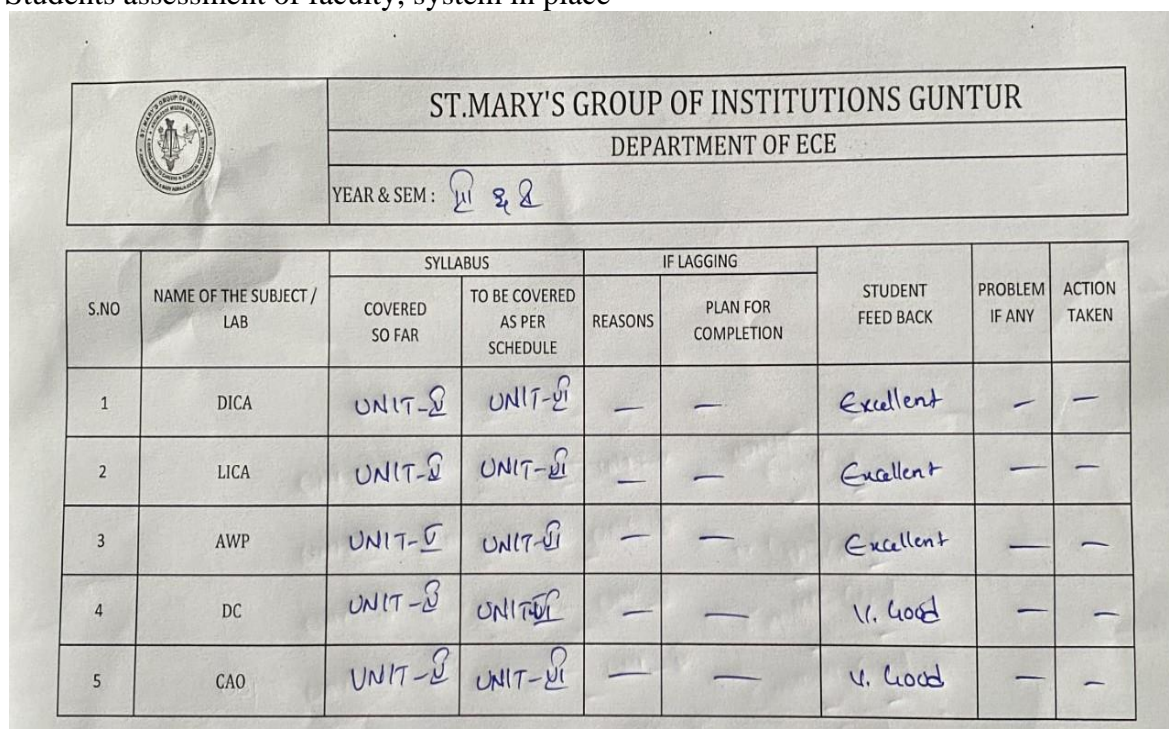 Students assessment of faculty, system in place
ST.MARY'S GROUP OF INSTITUTIONS GUNTUR
DEPARTMENT OF ECE
YEAR & SEM :
SYLLABUS IF LAGGING
S.NO NAME OF THE SUBJECT / LAB COVERED SO FAR TO BE COVERED AS PER SCHEDULE REASONS PLAN FOR COMPLETION STUDENT FEED BACK PROBLEM IF ANY ACTION TAKEN
1 DICA UNIT-V UNIT-VI — — Excellent — —
2 LICA UNIT-V UNIT-VI — — Excellent — —
3 AWP UNIT-V UNIT-VI — — Excellent — —
4 DC UNIT-V UNIT-VI — — V. Good — —
5 CAO UNIT-V UNIT-VI — — V. Good — —